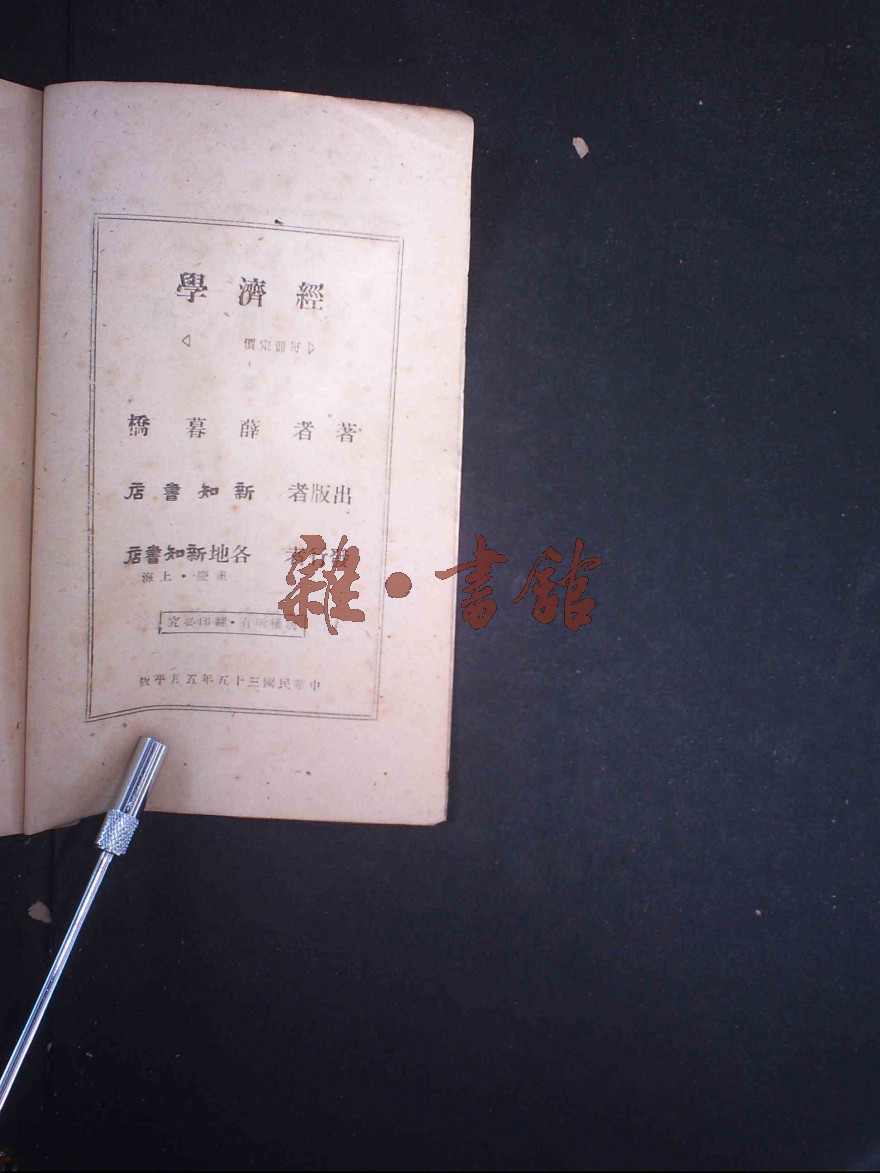 經濟學
每册定價
著者 薛暮橋
出版者 新知書店
發行者 各地新知書店
重慶・上海
有・翻印必究
中華民國三十五年五月平版
雜・書館